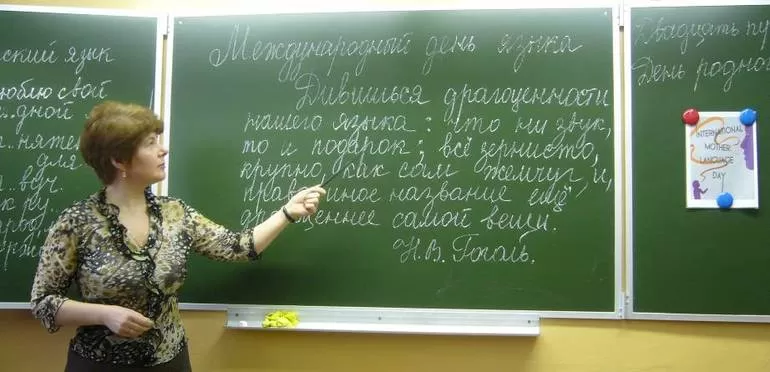 ский язык
люблю свой
дной
няте
для
вуч.
Международный день языка
Дивишься драгоценности
нашего языка: что ни звук,
то и подарок; всё зернисто,
крупно, как сам жемчуг, и,
название ещё
драгоценнее самой вещи.
Н.В. Гоголь.
Двадцать
День родно
INTERNATIONAL
MOTHER
LANGUAGE
DAY